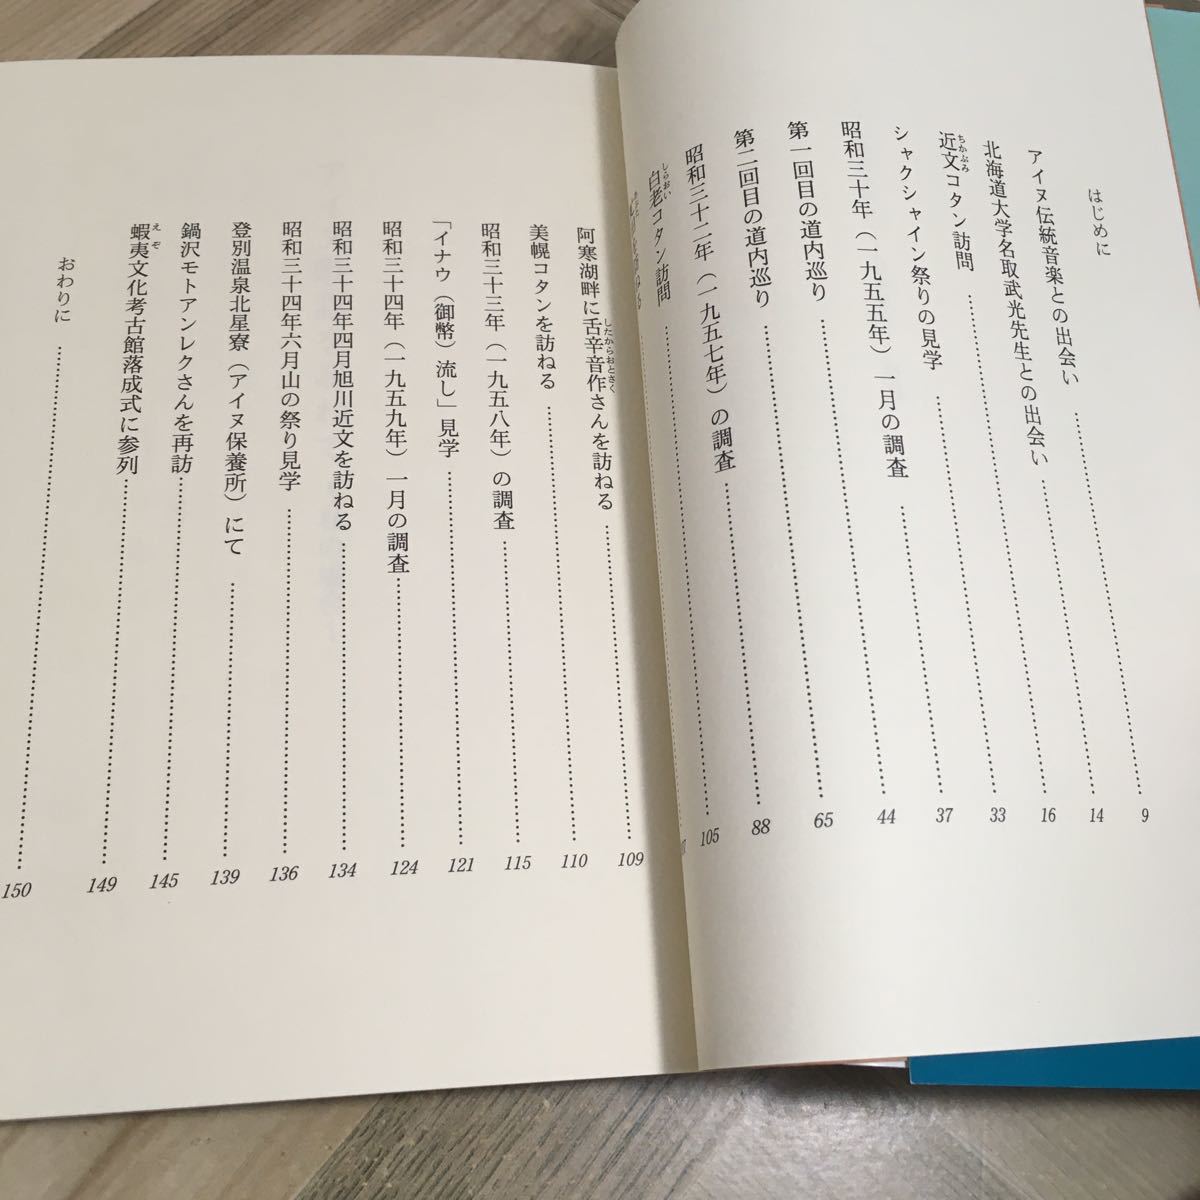 はじめに……9
アイヌ伝統音楽との出会い……14
北海道大学名取武光先生との出会い……16
近文コタン訪問……33
ちかぶみ
シャクシャイン祭りの見学……37
昭和三十年（一九五五年）一月の調査……44
第一回目の道内巡り……65
第二回目の道内巡り……88
昭和三十二年（一九五七年）の調査……105
白老コタン訪問
しらおい
阿寒湖畔に舌辛音作さんを訪ねる……109
したからおとさく
美幌コタンを訪ねる……110
昭和三十三年（一九五八年）の調査……115
「イナウ（御幣）流し」見学……121
昭和三十四年（一九五九年）一月の調査……124
昭和三十四年四月旭川近文を訪ねる……134
昭和三十四年六月山の祭り見学……136
登別温泉北星寮（アイヌ保養所）にて……139
鍋沢モトアンレクさんを再訪……145
蝦夷文化考古館落成式に参列……149
えぞ
おわりに……150